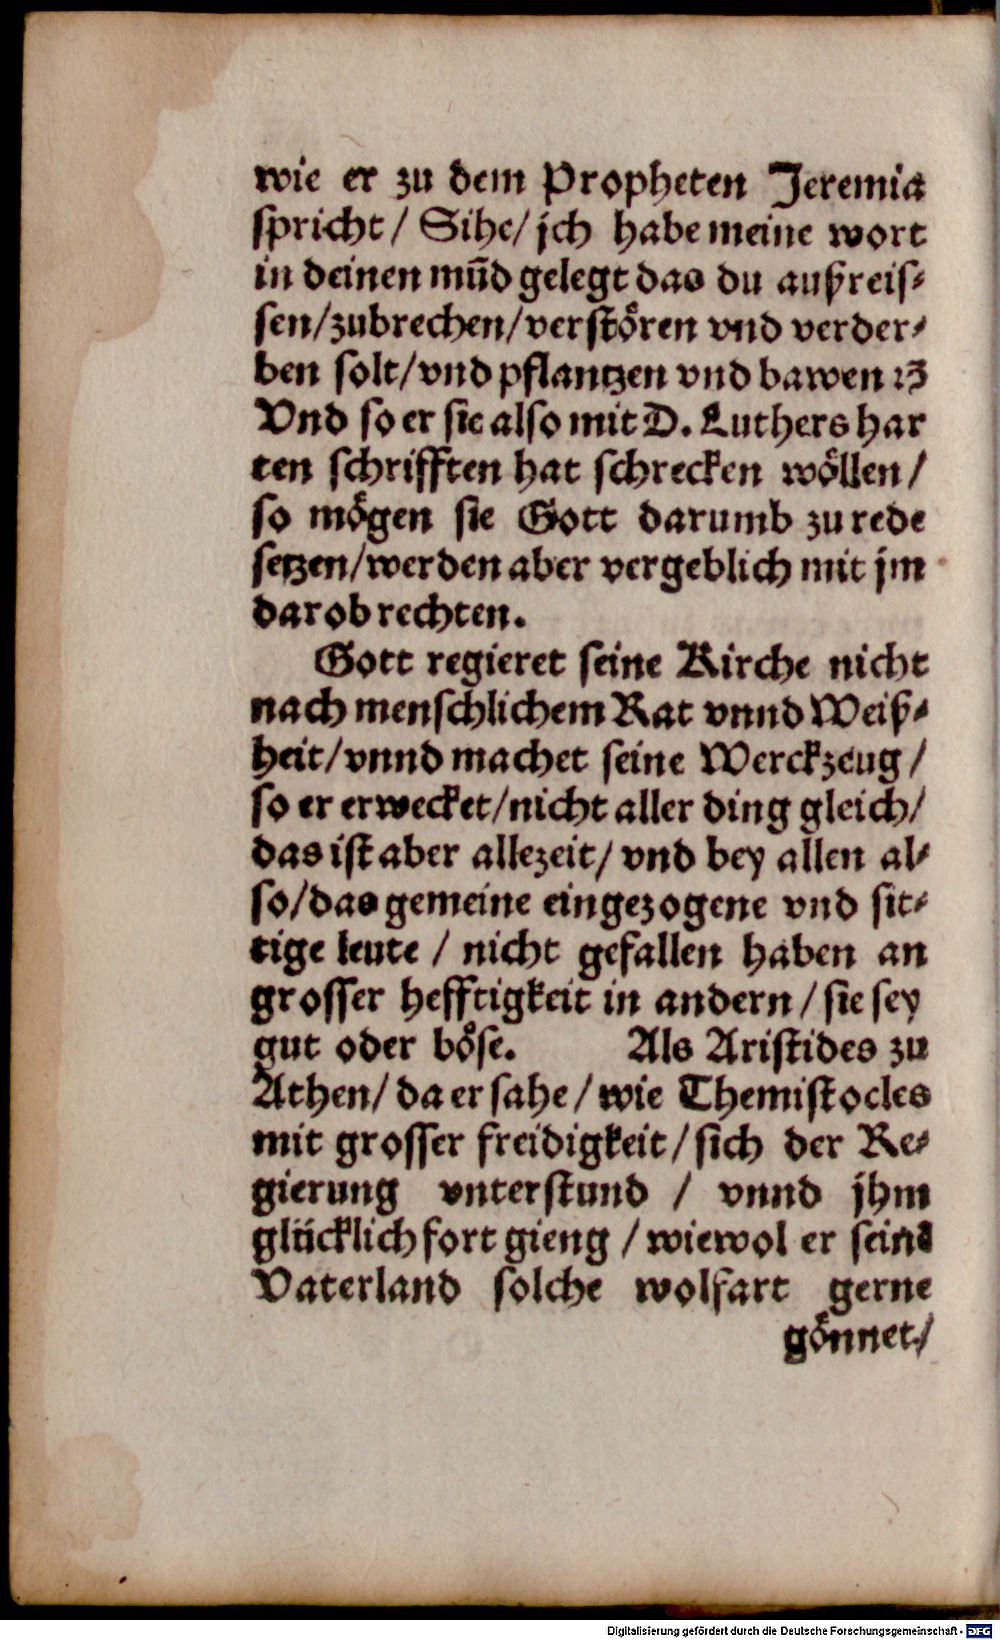 wie er zu dem Propheten Jeremia
spricht/ Sihe/ jch habe meine wort
in deinen mūd gelegt das du außreis⸗
sen/zubrechen/verstoͤren vnd verder⸗
ben solt/vnd pflantzen vnd bawen ꝛc
Vnd so er sie also mit D. Luthers har
ten schrifften hat schrecken woͤllen/
so moͤgen sie Gott darumb zu rede
setzen/werden aber vergeblich mit jm
darob rechten.
Gott regieret seine Kirche nicht
nach menschlichem Rat vnnd Weiß⸗
heit/vnnd machet seine Werckzeug/
so er erwecket/nicht aller ding gleich/
das ist aber allezeit/ vnd bey allen al⸗
so/das gemeine eingezogene vnd sit⸗
tige leute / nicht gefallen haben an
grosser hefftigkeit in andern/ sie sey
gut oder boͤse. Als Aristides zu
Athen/ da er sahe/ wie Themistocles
mit grosser freidigkeit/ sich der Re⸗
gierung vnterstund / vnnd jhm
gluͤcklich fort gieng / wiewol er seinē
Vaterland solche wolfart gerne
goͤnnet/
Digitalisierung gefördert durch die Deutsche Forschungsgemeinschaft - DFG